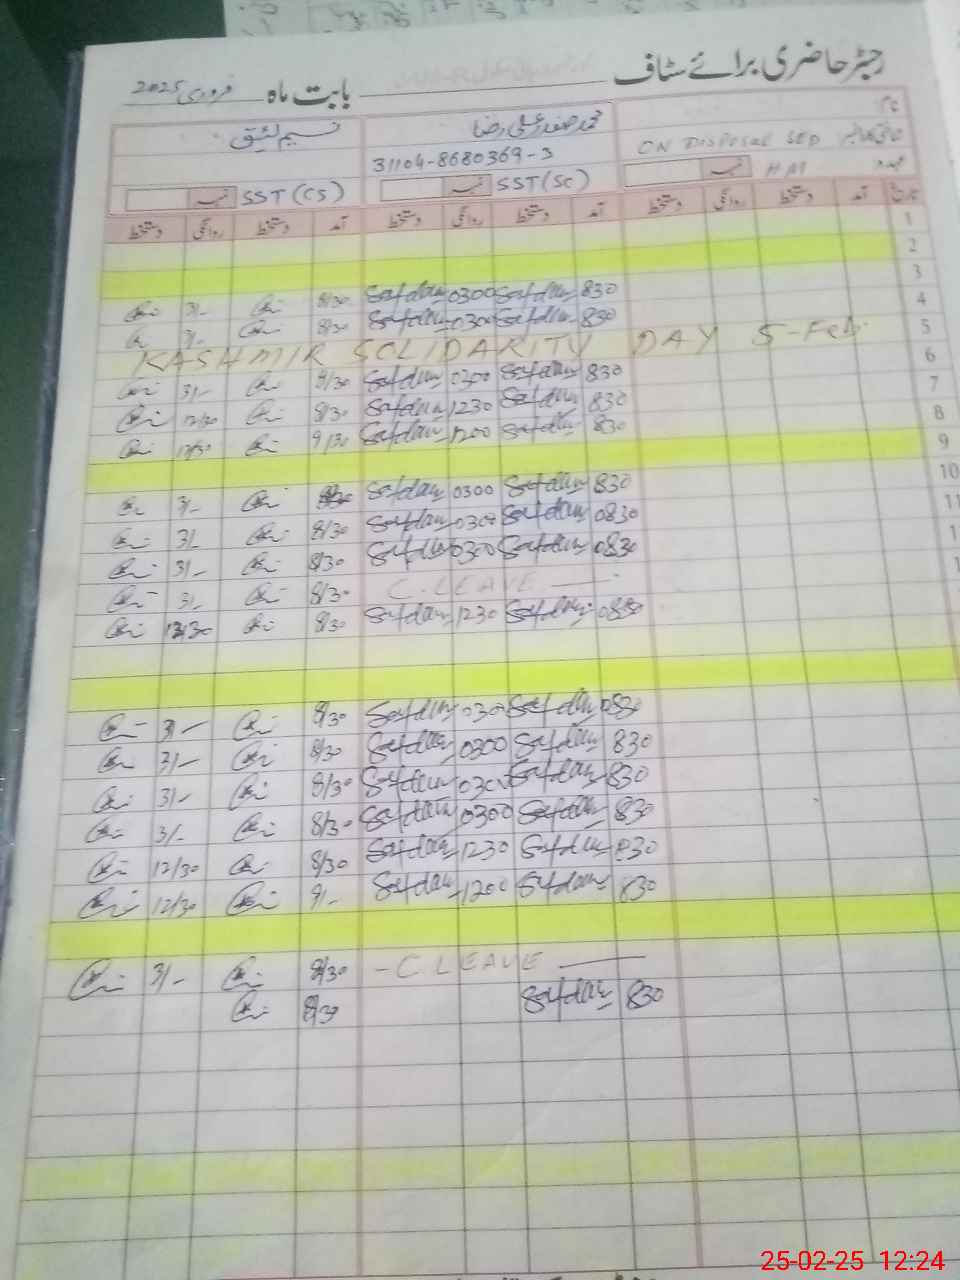 رجسٹر حاضری برائے سٹاف بابت ماہ فروری 2025
نام محمد صفدر علی رضا نسیم لئیق
ON DISPOSAL SED 31104-8680369-3
عہدہ HM SST (SC) SST (CS)
تاریخ آمد دستخط روانگی دستخط آمد دستخط روانگی دستخط آمد دستخط روانگی دستخط
1
2
3 830 Safdar 0300 Safdar 8/30 3/-
4 830 Safdar 0300 Safdar 8/30 3/-
5 KASHMIR SOLIDARITY DAY 5-Feb.
6 830 Safdar 0300 Safdar 8/30 3/-
7 830 Safdar 1230 Safdar 8/30 12/30
8 830 Safdar 1200 Safdar 9/30 12/30
9
10 830 Safdar 0300 Safdar 3/-
11 0830 Safdar 0300 Safdar 8/30 3/-
0830 Safdar 0300 Safdar 8/30 3/-
C. LEAVE 8/30 3/-
0830 Safdar 1230 Safdar 8/30 12/30
0830 Safdar 0300 Safdar 8/30 3/-
830 Safdar 0300 Safdar 8/30 3/-
830 Safdar 0300 Safdar 8/30 3/-
830 Safdar 0300 Safdar 8/30 3/-
830 Safdar 1230 Safdar 8/30 12/30
830 Safdar 1200 Safdar 9/- 12/30
- C. LEAVE 8/30 3/-
830 Safdar 8/30
25-02-25 12:24